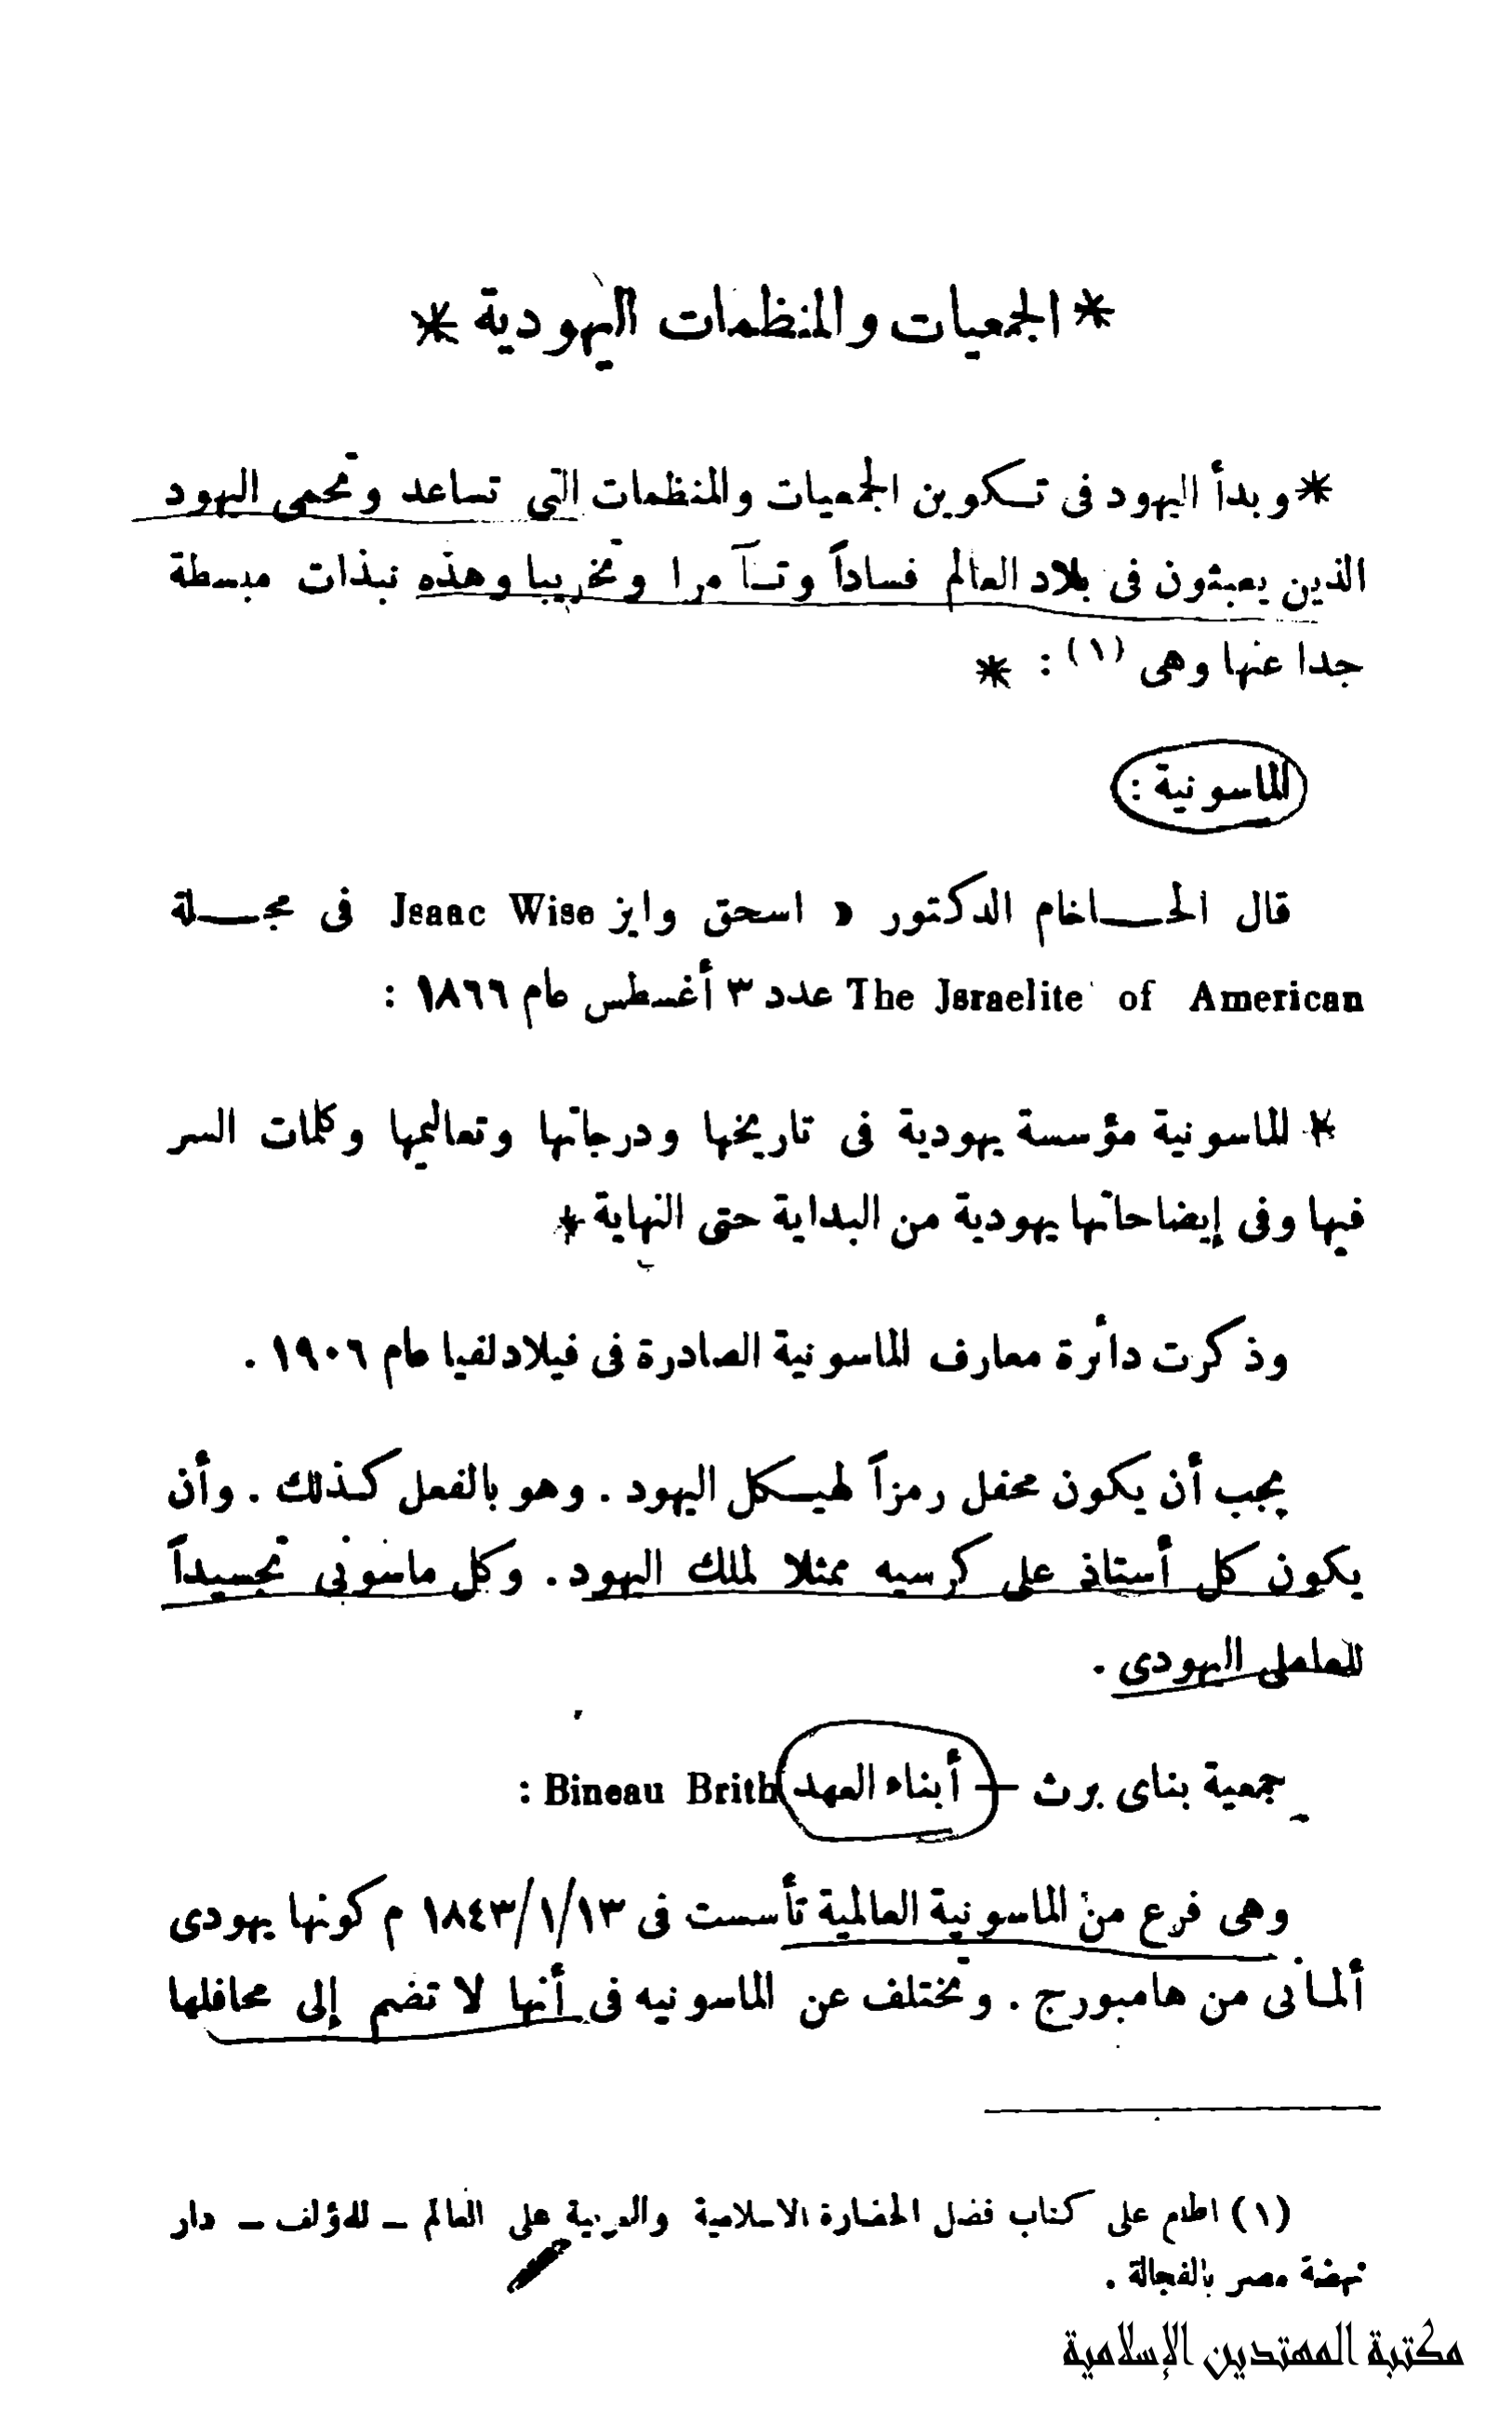 * الجمعيات والمنظمات اليهودية *
* وبدأ اليهود فى تكوين الجمعيات والمنظمات التى تساعد وتحمى اليهود
الذين يعبثون فى بلاد العالم فساداً وتآمرا وتخريبا وهذه نبذات مبسطة
جدا عنها وهى (١) : *
الماسونية :
قال الحاخام الدكتور « اسحق وايز Jsaac Wise فى مجلة
The Jsraelite of American عدد ٣ أغسطس عام ١٨٦٦ :
* الماسونية مؤسسة يهودية فى تاريخها ودرجاتها وتعاليمها وكلمات السر
فيها وفى إيضاحاتها يهودية من البداية حتى النهاية *
وذكرت دائرة معارف الماسونية الصادرة فى فيلادلفيا عام ١٩٠٦ .
يجب أن يكون محفل رمزاً لهيكل اليهود . وهو بالفعل كذلك . وأن
يكون كل أستاذ على كرسيه ممثلا لملك اليهود . وكل ماسونى تجسيداً
للعامل اليهودى .
جمعية بناى برث – أبناء العهد Bineau Brith :
وهى فرع من الماسونية العالمية تأسست فى ١٨٤٣/١/١٣ م كونها يهودى
ألمانى من هامبورج . وتختلف عن الماسونيه فى أنها لا تضم إلى محافلها
(١) اطلع على كتاب فضل الحضارة الاسلامية والعربية على العالم – للمؤلف – دار
نهضة مصر بالفجالة .
مكتبة المهتدين الإسلامية